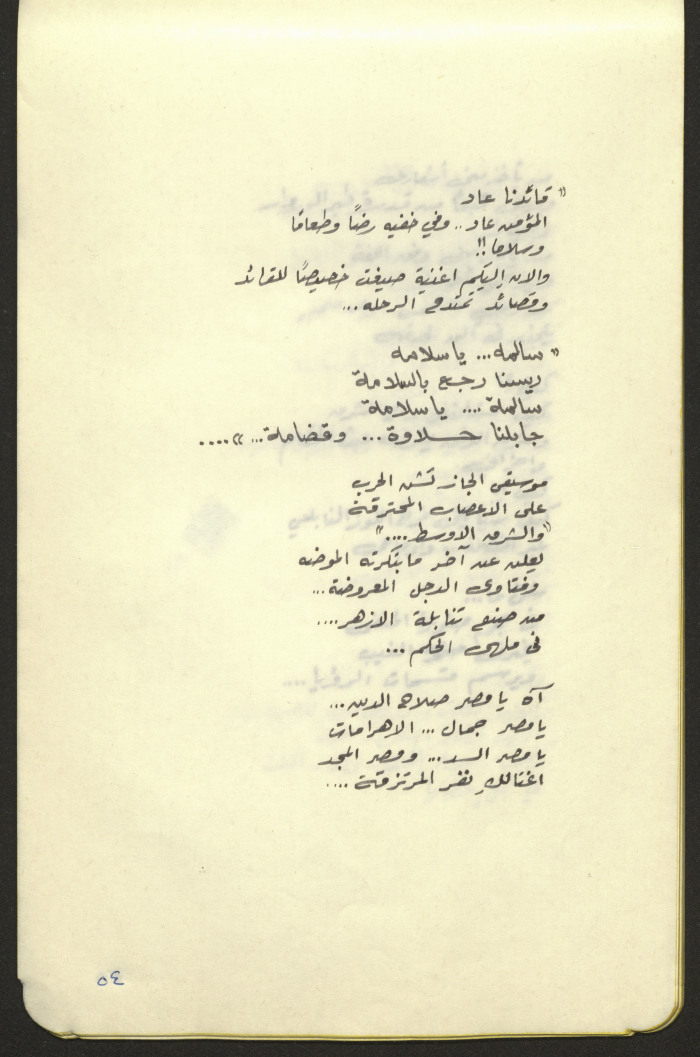 « قائدنا عاد
المؤمن عاد.. وفي خفيه رضًا وطعامًا
وسلاما !!
والان إليكم اغنية صيغت خصيصًا للقائد
وقصائد تمتدح الرحله...
« سالمه... يا سلامه
ريسنا رجع بالسلامة
سالمة .... يا سلامة
جابلنا حــلاوة ... وقضامة... » ....
موسيقى الجاز تشن الحرب
على الاعصاب المحترقة
« والشرق الاوسط .... »
يعلن عن آخر ما بتكرته الموضه
وفتاوى الدجل المعروضة...
من صنع تنابلة الازهر....
في ملهى الحكم ...
آه يا مصر صلاح الدين...
يا مصر جمال ... الاهرامات
يا مصر السد... ومصر المجد
اغتالكِ نفر المرتزقة ....
٥٤